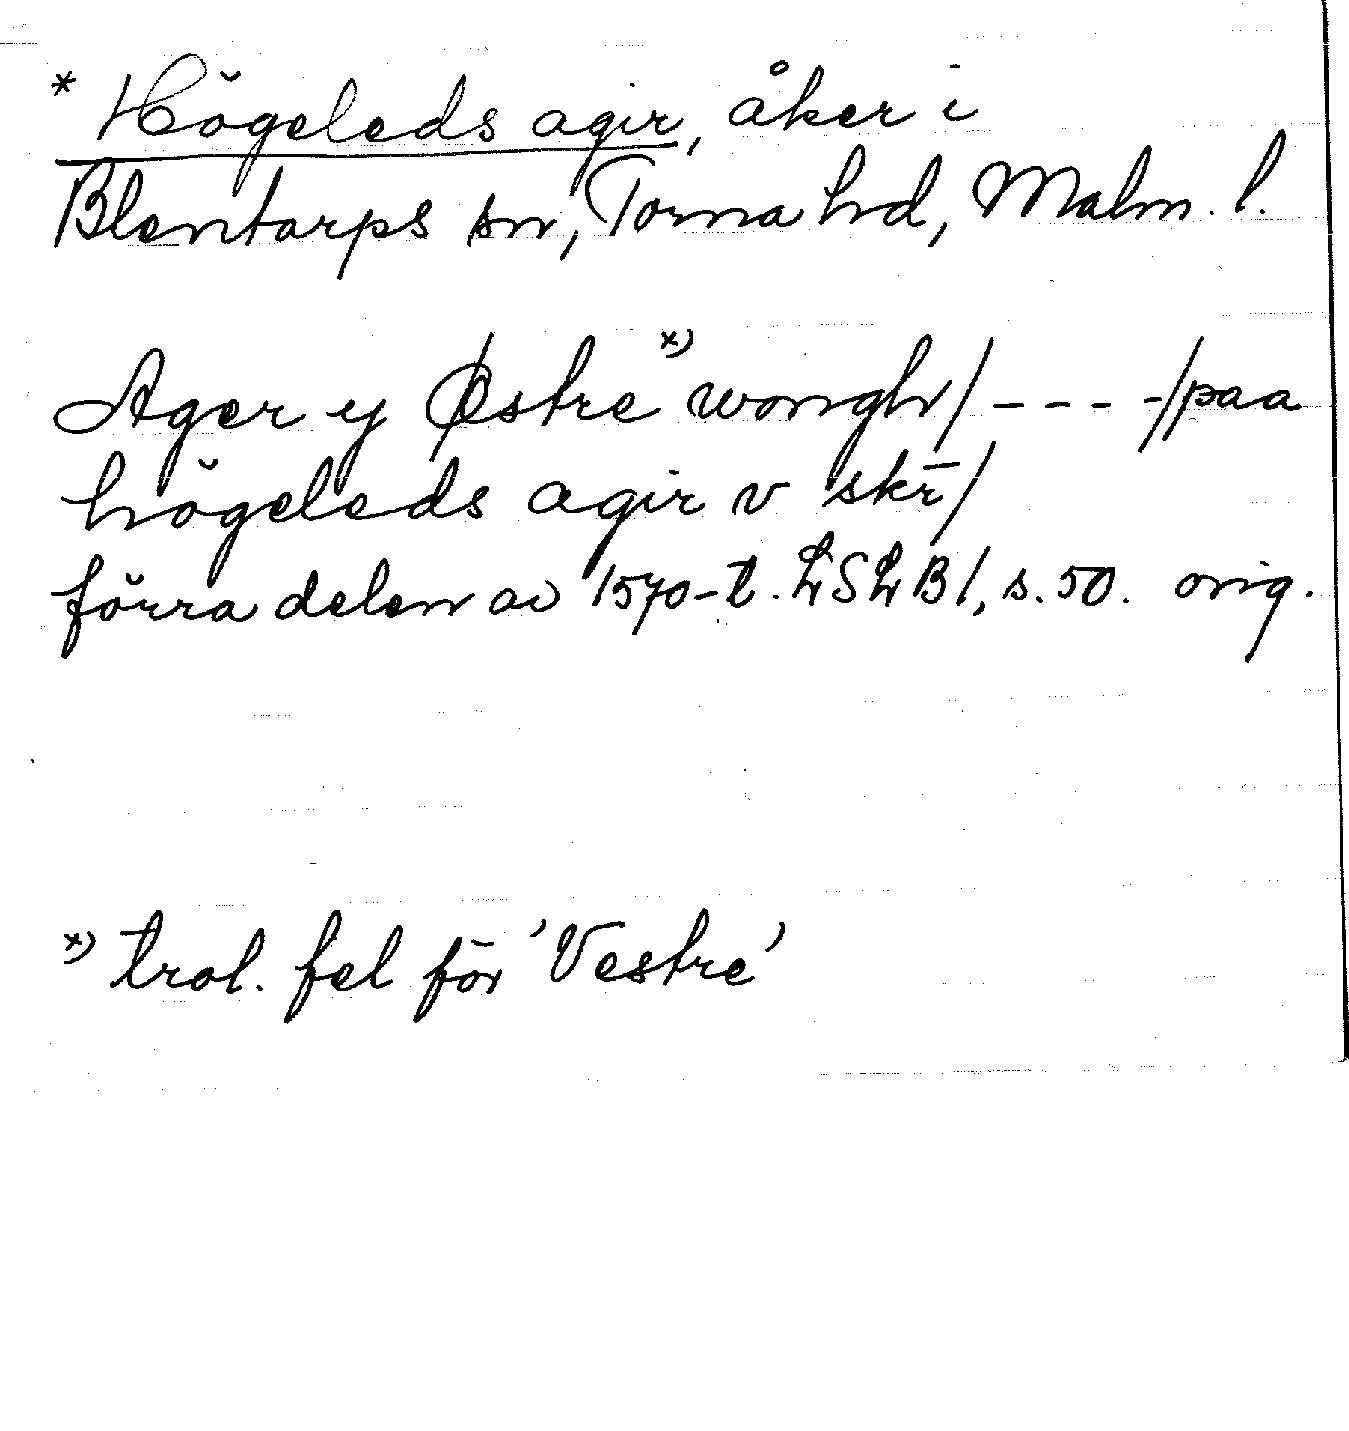 * Högeleds agir, åker i
Blentarps sn, Torna hd, Malm. l.
Ager y Østre *) wongh/ - - - -/paa
högeleds agir v skr̄/
förra delen av 1570-t. LSLB1, s. 50. orig.
*) trol. fel för 'Vestre'